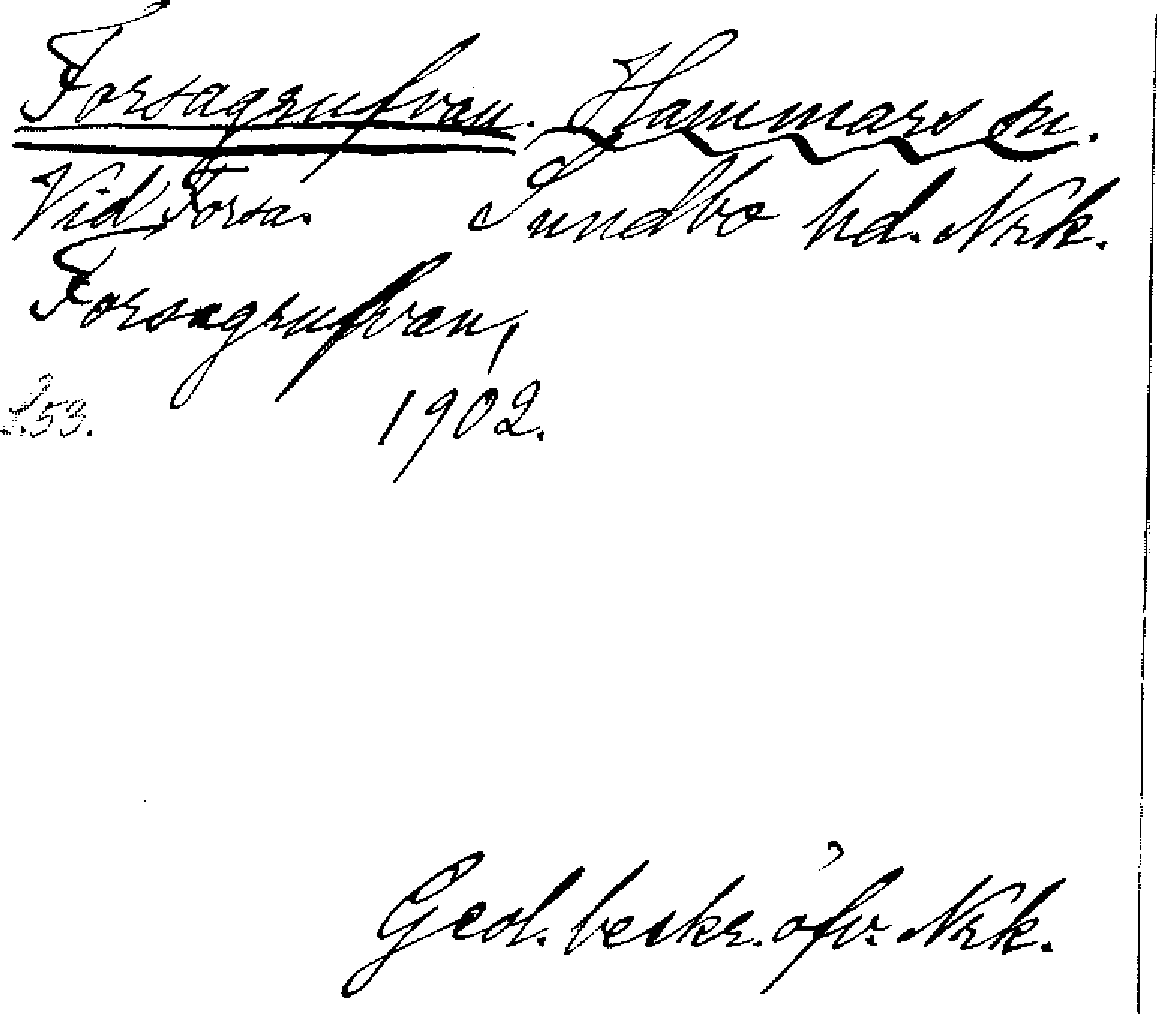 Forsagrufvan. Hammars sn.
Vid Forsa. Sundbo hd. Nrk.
Forsagrufvan,
S.53. 1902.
Geol. beskr. öfv. Nrk.